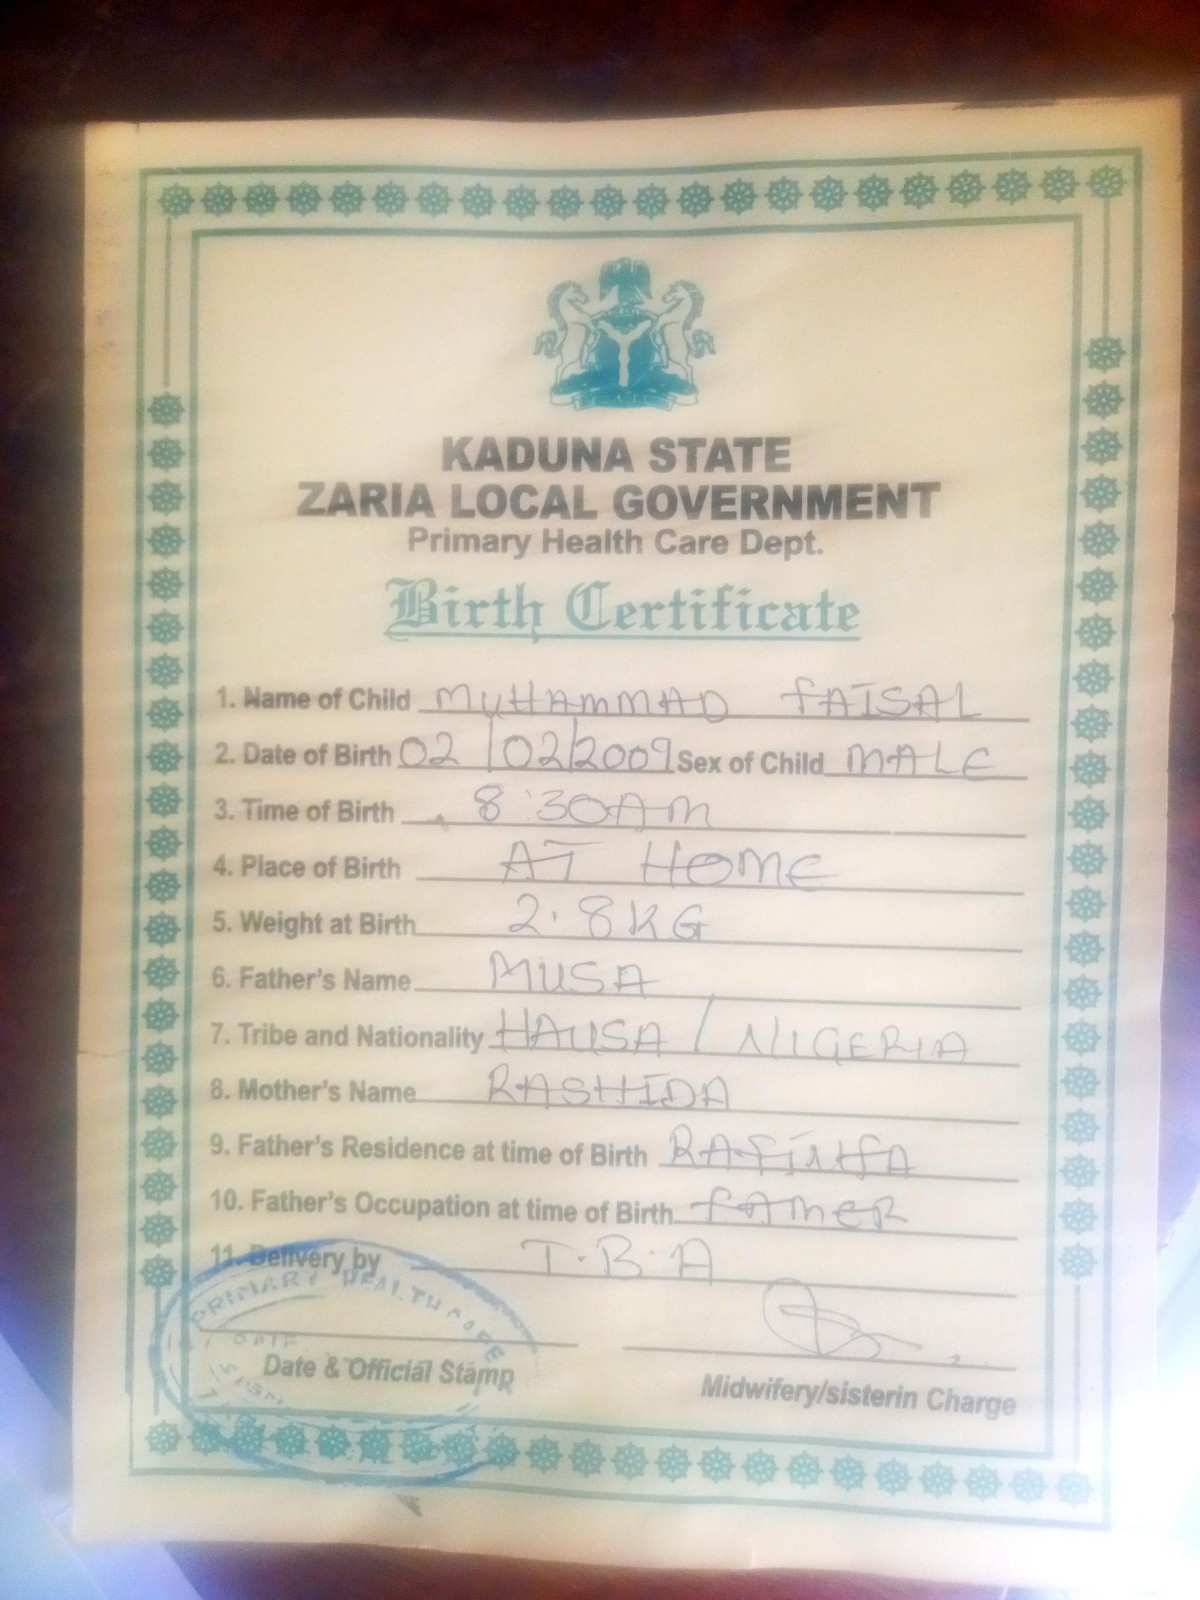 KADUNA STATE
ZARIA LOCAL GOVERNMENT
Primary Health Care Dept.
Birth Certificate
1. Name of Child MUHAMMAD FAISAL
2. Date of Birth 02/02/2009 Sex of Child MALE
3. Time of Birth 8:30AM
4. Place of Birth AT HOME
5. Weight at Birth 2.8KG
6. Father's Name MUSA
7. Tribe and Nationality HAUSA / NIGERIA
8. Mother's Name RASHIDA
9. Father's Residence at time of Birth
10. Father's Occupation at time of Birth FAMER
11. Delivery by T.B.A
PRIMARY HEALTH CARE
DATE
Date & Official Stamp
Midwifery/sisterin Charge